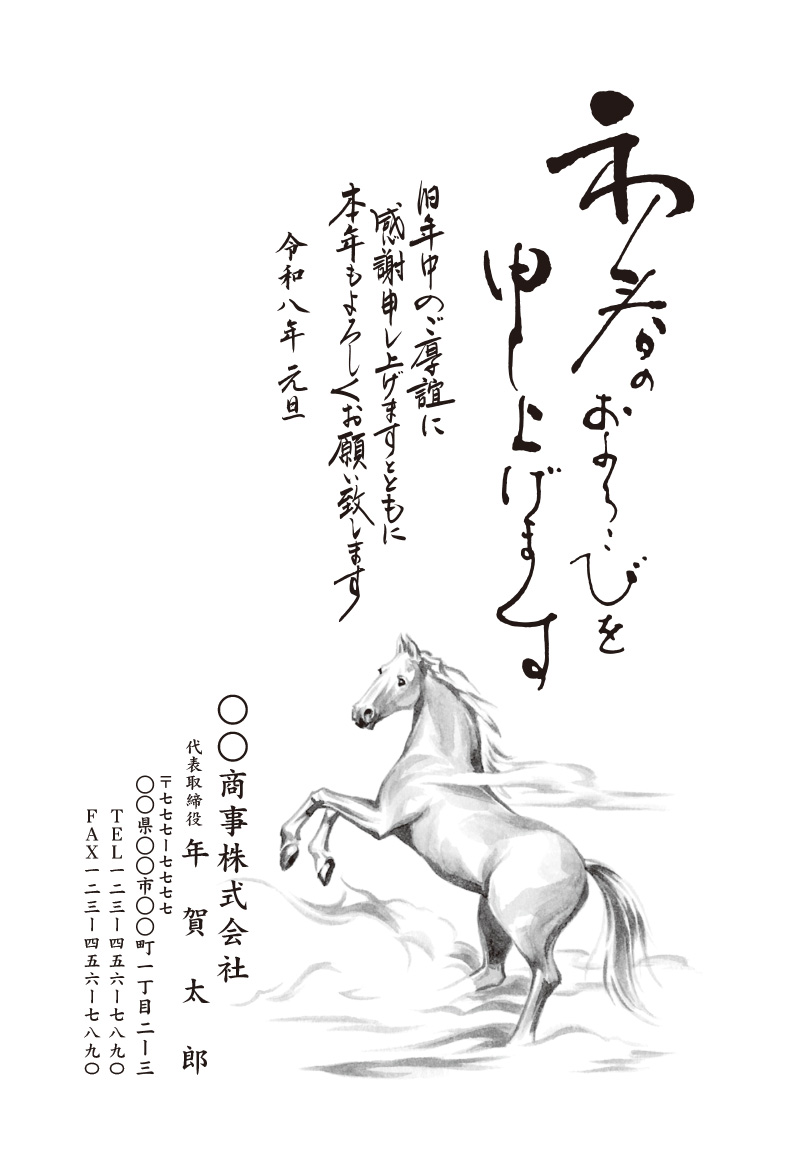 初春の
およろこびを
申し上げます
旧年中のご厚誼に
感謝申し上げますとともに
本年もよろしくお願い致します
令和八年 元旦
〇〇商事株式会社
代表取締役 年賀太郎
〒七七七ー七七七七
〇〇県〇〇市〇〇町一丁目二ー三
TEL一二三ー四五六ー七八九〇
FAX一二三ー四五六ー七八九〇